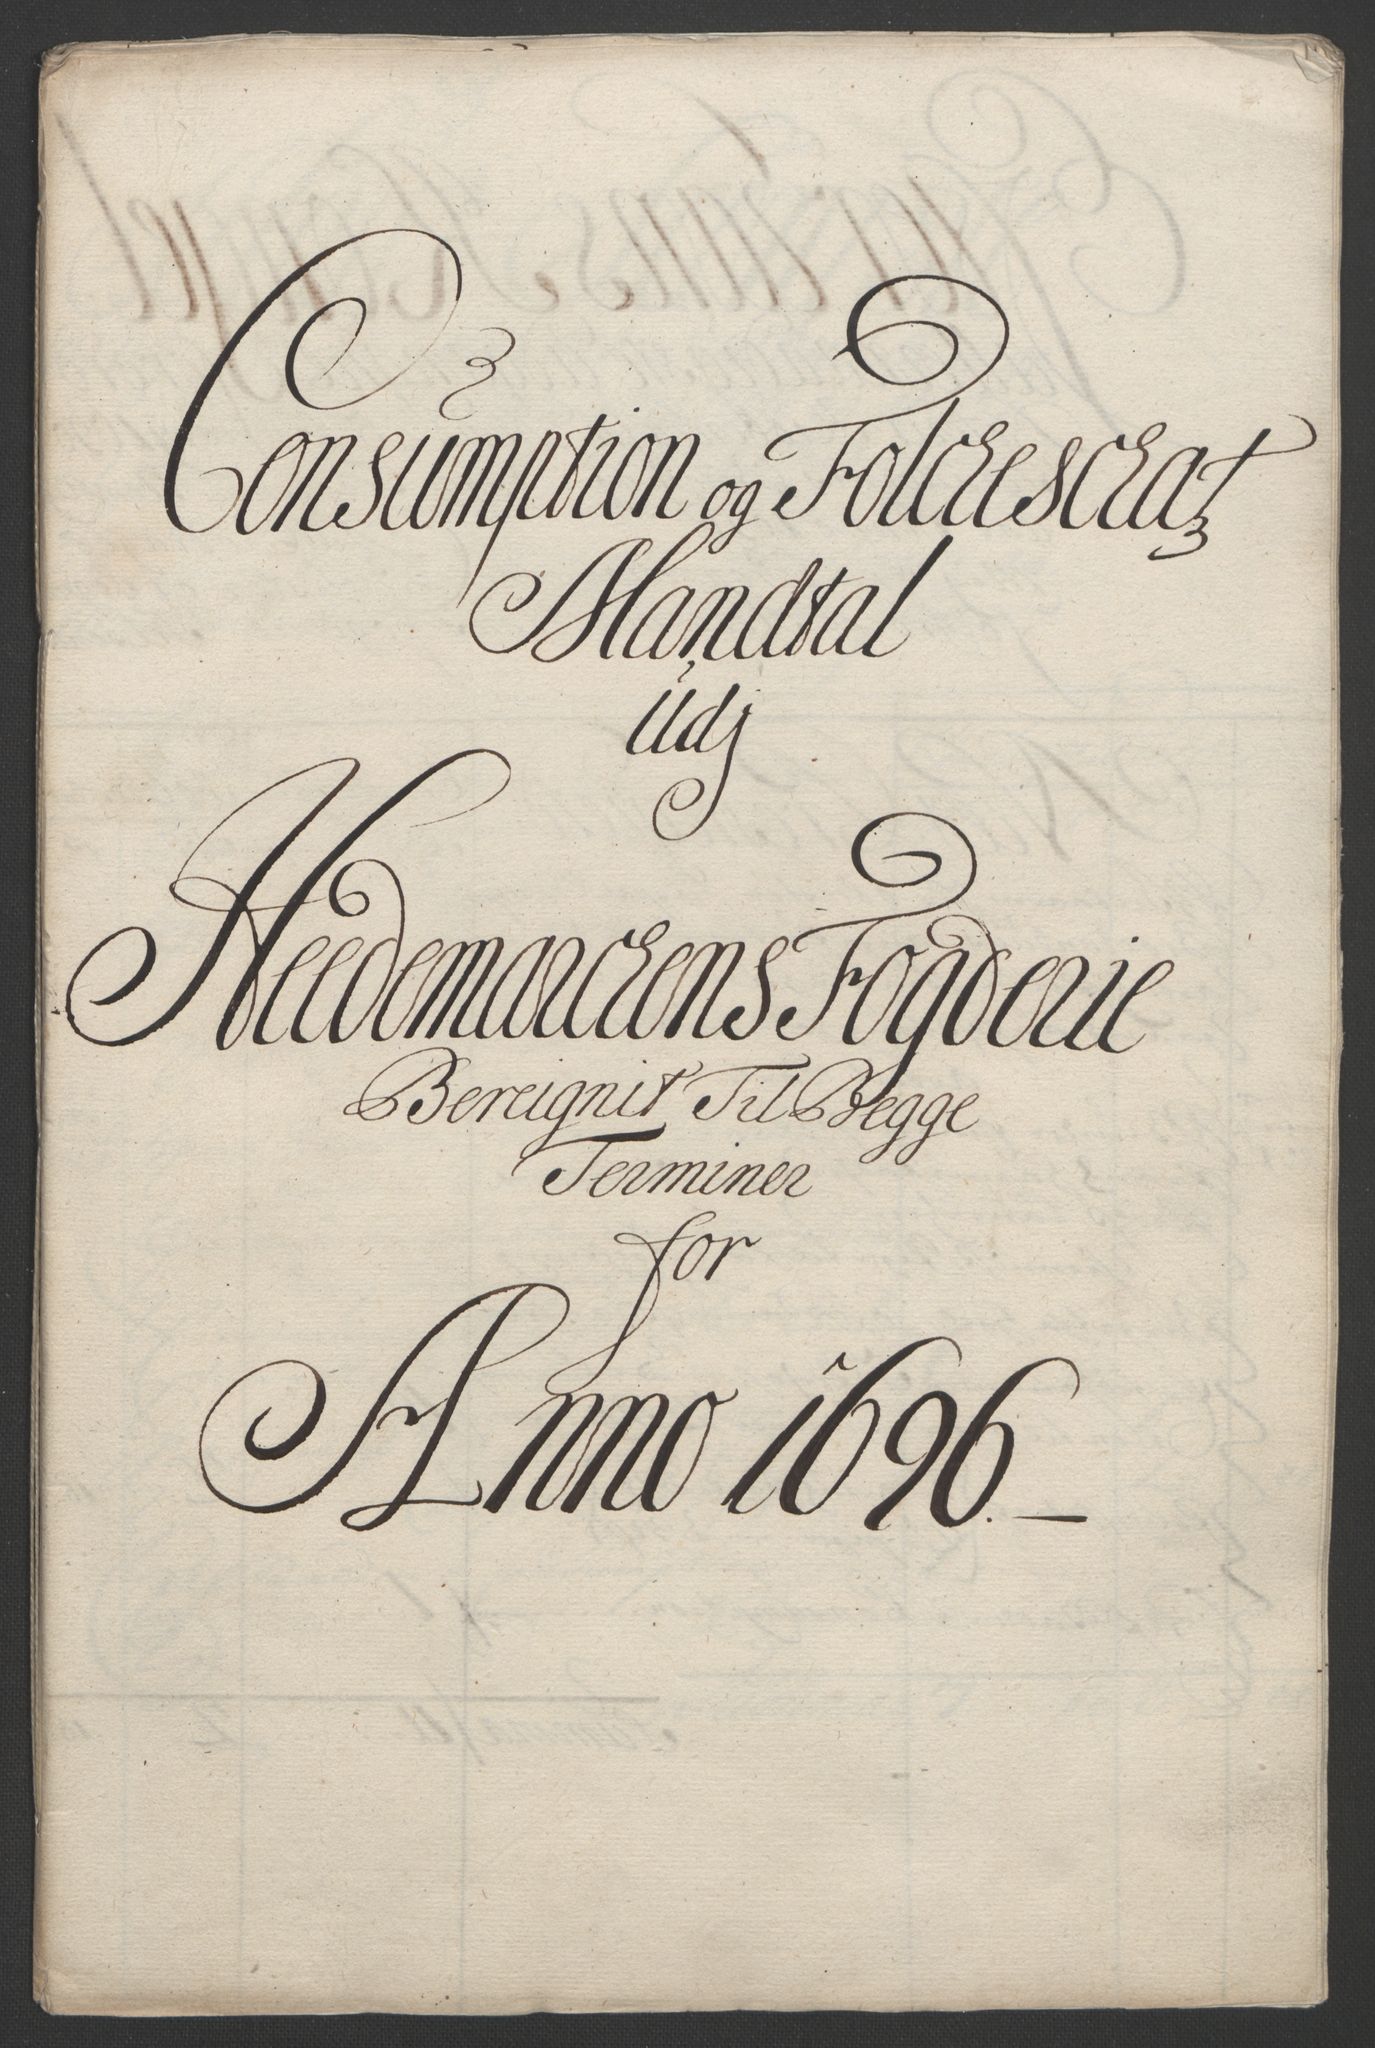 Consumption og Folcheschat
Mandtal
Udj
Heedemarchens Fogderie
Bereignit Til Begge
Terminer
for
Anno 1696